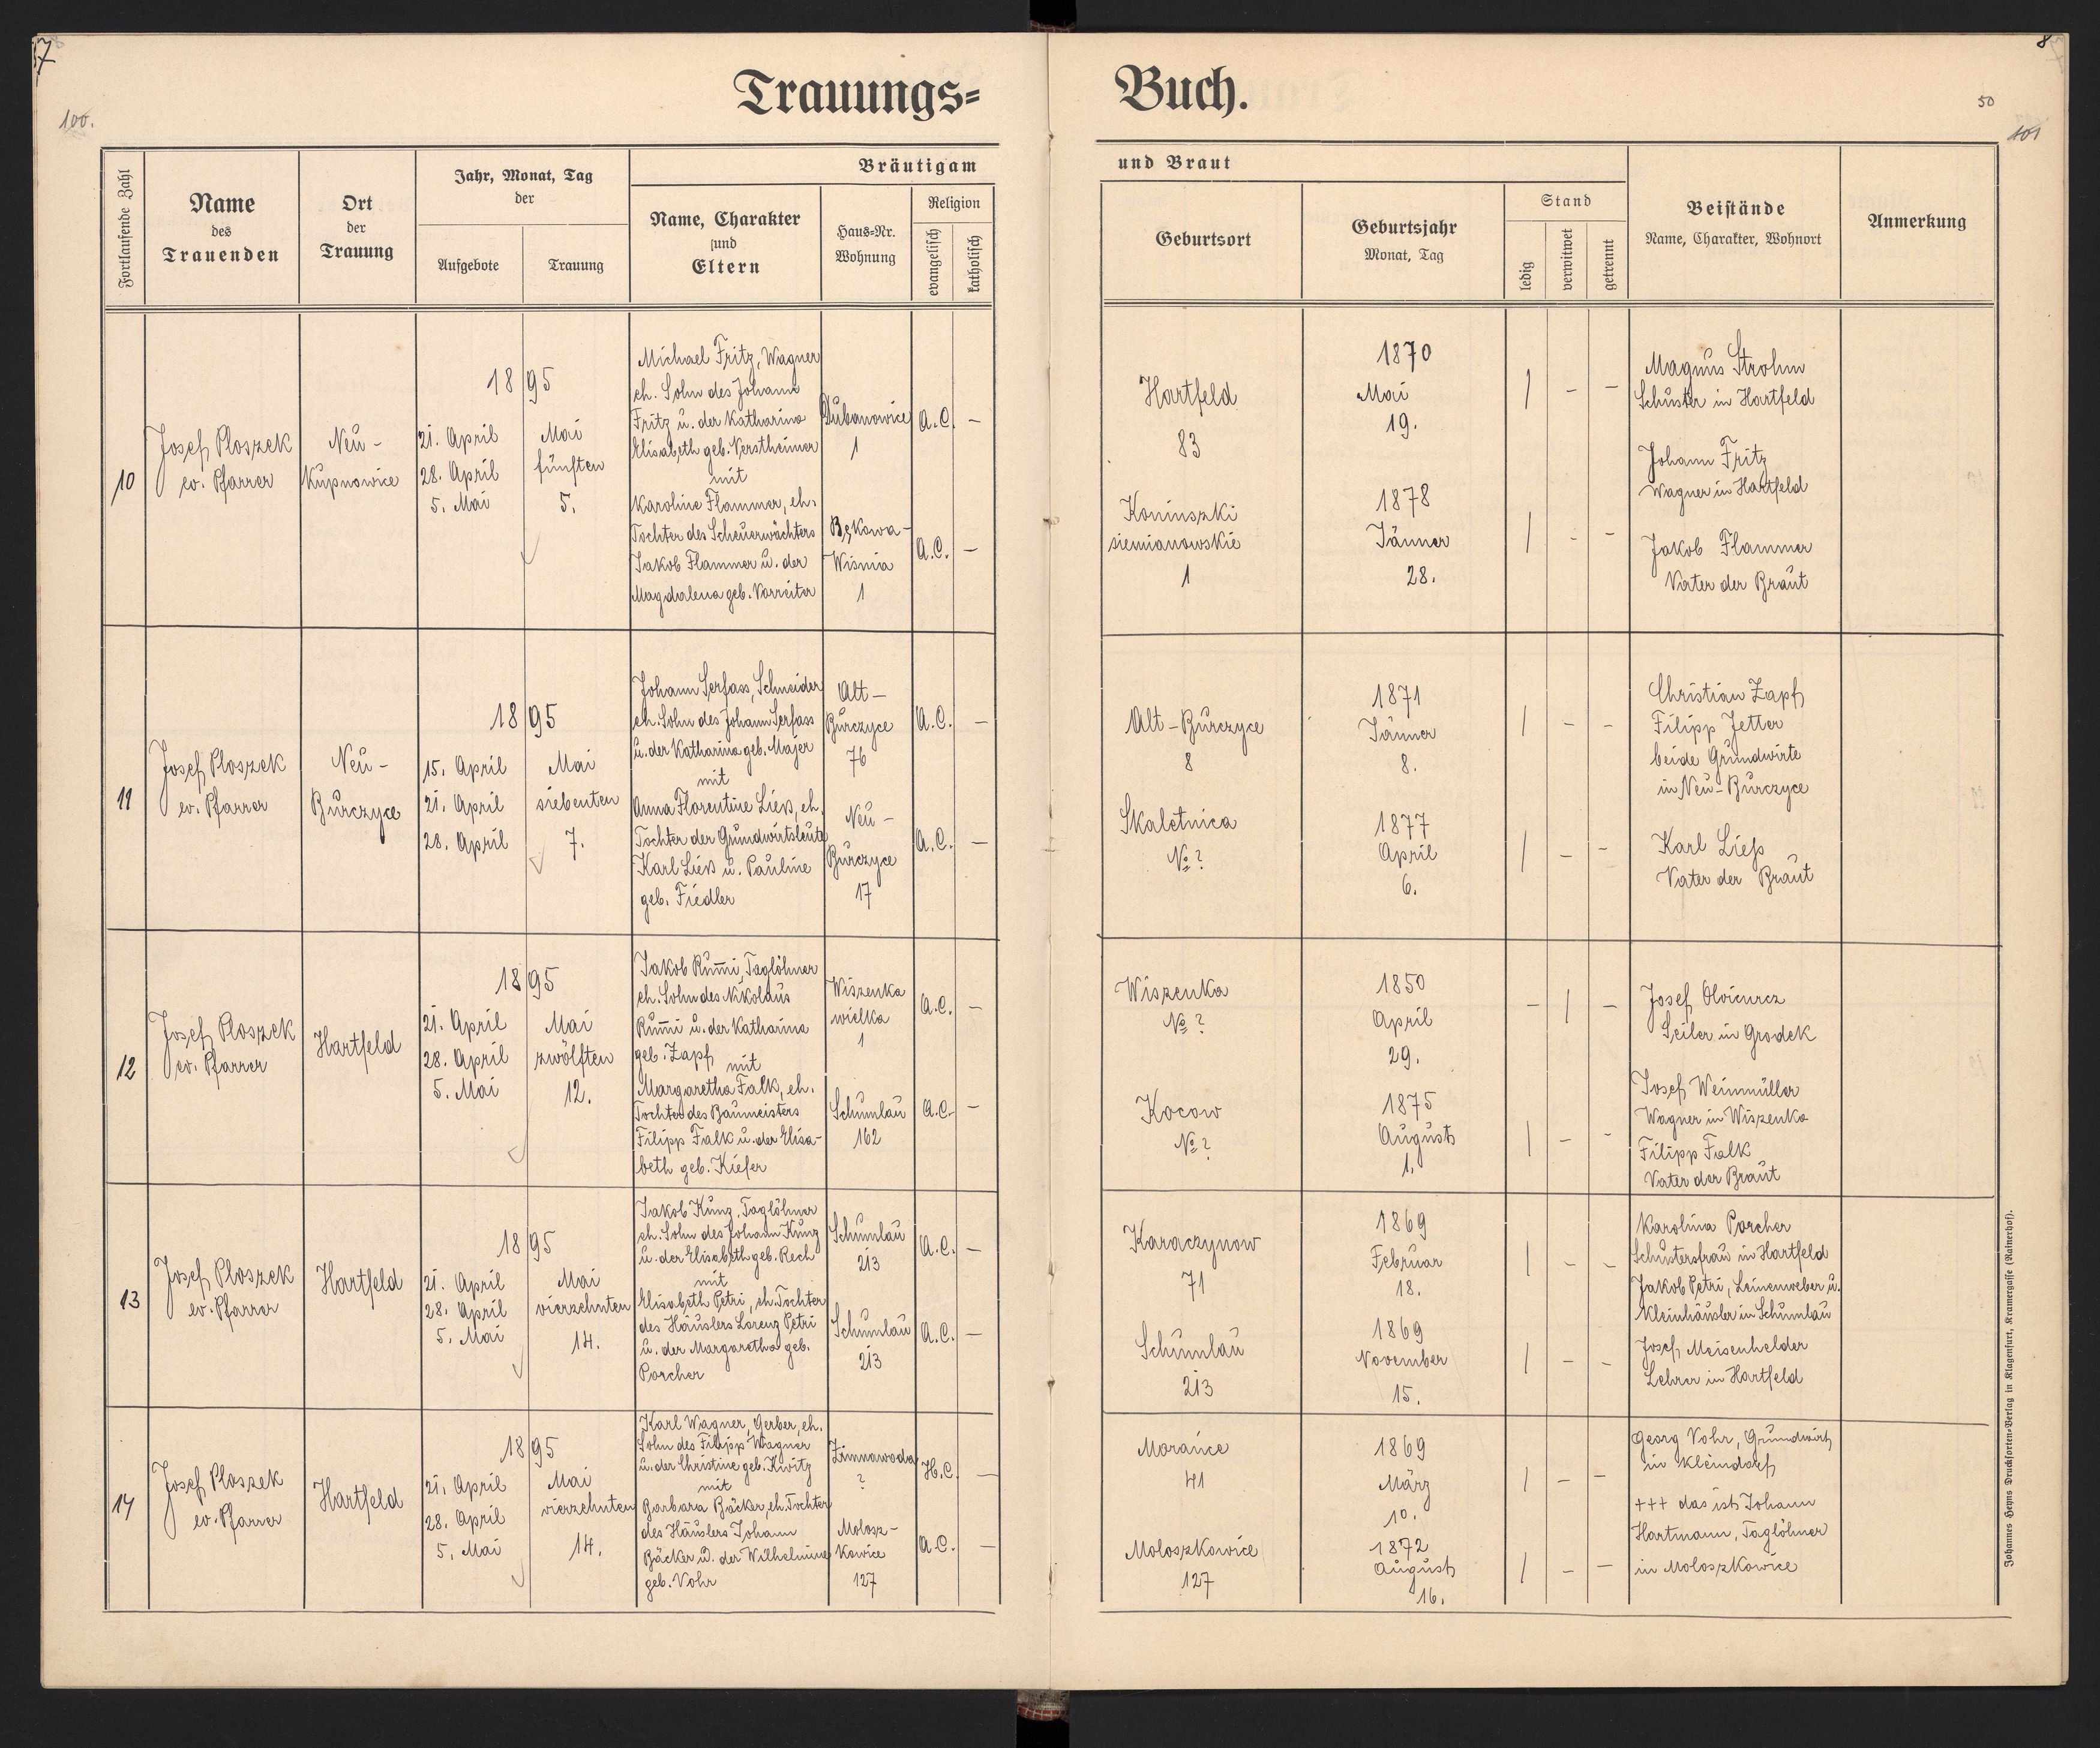 7
8
Trauungs=
Buch.
100.
50
101
Fortlaufende Zahl
Name
des
Trauenden
Ort
der
Trauung
Jahr, Monat, Tag
der
Aufgebote
Trauung
Bräutigam
und Braut
Name, Charakter
und
Eltern
Haus=Nr.
Wohnung
Religion
evangelisch
katholisch
Geburtsort
Geburtsjahr
Monat, Tag
Stand
ledig
verwitwet
getrennt
Beistände
Name, Charakter, Wohnort
Anmerkung
10
Josef Ploszek
ev. Pfarrer
Neu-
Kupnowice
1895
21. April
28. April
5. Mai
Mai
fünften
5.
Michael Fritz, Wagner
eh. Sohn des Johann
Fritz u. der Katharina
Elisabeth geb. Verstheimer
mit
Karoline Flammer, eh.
Tochter des Scheuerwächters
Jakob Flammer u. der
Magdalena geb. Vorreiter
Dubanowice
1
Bękowa-
Wisnia
1
A.C. -
A.C. -
Hartfeld
83
Koniuszki
siemianowskie
1
1870
Mai
19.
1878
Jänner
28.
1 - -
1 - -
Magnus Strohm
Schuster in Hartfeld
Johann Fritz
Wagner in Hartfeld
Jakob Flammer
Vater der Braut
11
Josef Ploszek
ev. Pfarrer
Neu-
Burczyce
1895
15. April
21. April
28. April
Mai
siebenten
7.
Johann Serfass, Schneider
eh. Sohn des Johann Serfass
u. der Katharina geb. Majer
mit
Anna Florentine Liess, eh.
Tochter der Grundwirtsleute
Karl Liess u. Pauline
geb. Fiedler
Alt-
Burczyce
76
Neu-
Burczyce
17
A.C. -
A.C. -
Alt-Burczyce
8
Skaletnica
No ?
1871
Jänner
8.
1877
April
6.
1 - -
1 - -
Christian Zapf
Filipp Jetter
beide Grundwirte
in Neu-Burczyce
Karl Liess
Vater der Braut
12
Josef Ploszek
ev. Pfarrer
Hartfeld
1895
21. April
28. April
5. Mai
Mai
zwölften
12.
Jakob Rum̄i, Taglöhner
eh. Sohn des Nikolaus
Rum̄i u. der Katharina
geb. Zapf
mit
Margaretha Falk, eh.
Tochter des Baumeisters
Filipp Falk u. der Elisa-
beth geb. Kiefer
Wiszenka
wielka
1
Schumlau
162
A.C. -
A.C. -
Wiszenka
No ?
Kocow
No ?
1850
April
29.
1875
August
1.
- 1 -
1 - -
Josef
Seiler in Grodek
Josef Weinmüller
Wagner in Wiszenka
Filipp Falk
Vater der Braut
13
Josef Ploszek
ev. Pfarrer
Hartfeld
1895
21. April
28. April
5. Mai
Mai
vierzehnten
14.
Jakob Kunz, Taglöhner
eh. Sohn des Johann Kunz
u. der Elisabeth geb. Rech
mit
Elisabeth Petri, eh. Tochter
des Häuslers Lorenz Petri
u. der Margaretha geb.
Porcher
Schumlau
213
Schumlau
213
A.C. -
A.C. -
Karaczynow
71
Schumlau
213
1869
Februar
18.
1869
November
15.
1 - -
1 - -
Karolina Porcher
Schustersfrau in Hartfeld
Jakob Petri, Leinenweber u.
Kleinhäusler in Schumlau
Josef Meisenhelder
Lehrer in Hartfeld
14
Josef Ploszek
ev. Pfarrer
Hartfeld
1895
21. April
28. April
5. Mai
Mai
vierzehnten
14.
Karl Wagner, Gerber, eh.
Sohn des Filipp Wagner
u. der Christine geb. Kwitz
mit
Barbara Bäcker, eh. Tochter
des Häuslers Johann
Bäcker u. der Wilhelmine
geb. Vohr
Zimnawoda
?
Molosz-
kowice
127
H.C. -
A.C. -
Morance
41
Moloszkowice
127
1869
März
10.
1872
August
16.
1 - -
1 - -
Georg Vohr, Grundwirt
in Kleindorf
+++ das ist Johann
Hartmann, Taglöhner
in Moloszkowice
Johannes Heyns Drucksorten=Verlag in Klagenfurt, Kramergasse (Rainerhof).